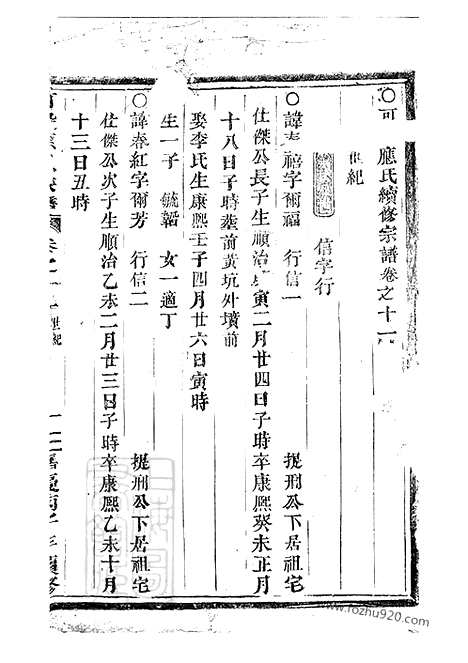 應氏續修宗譜卷之十一
世紀
信字行
○諱春禧字爾福 行信一 提刑公下居祖宅
仕傑公長子生順治 寅二月廿四日子時卒康熙癸未正月
十八日子時葬前黃坑外墳前
娶李氏生康熙壬子四月廿六日寅時
生一子 毓韜 女一適丁
○諱春紅字爾芳 行信二 提刑公下居祖宅
仕傑公次子生順治乙未二月廿三日子時卒康熙乙未十月
十三日丑時
世紀
www.fozhu920.com